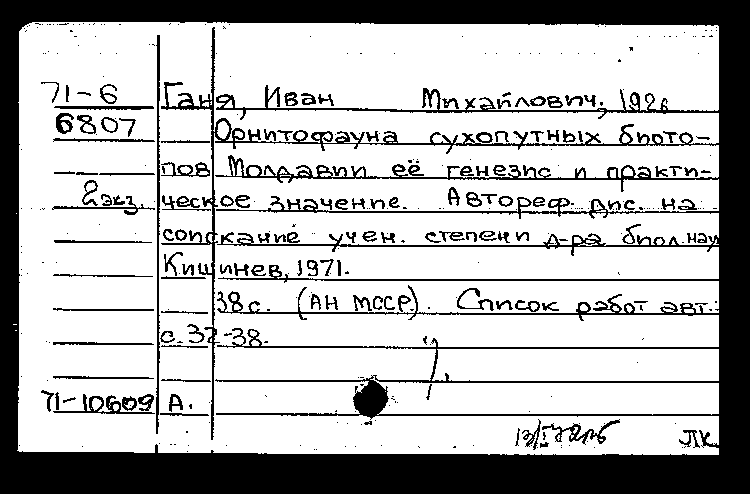 71-6 Ганя, Иван Михайлович, 1926
6807 Орнитофауна сухопутных биото-
пов Молдавии её генезис и практи-
2 экз. ческое значение. Автореф. дис. на
соискание учен. степени д-ра биол. нау
Кишинев, 1971.
38 с. (АН МССР). Список работ авт.:
с. 37-38.
71-10609 А.
ЛК